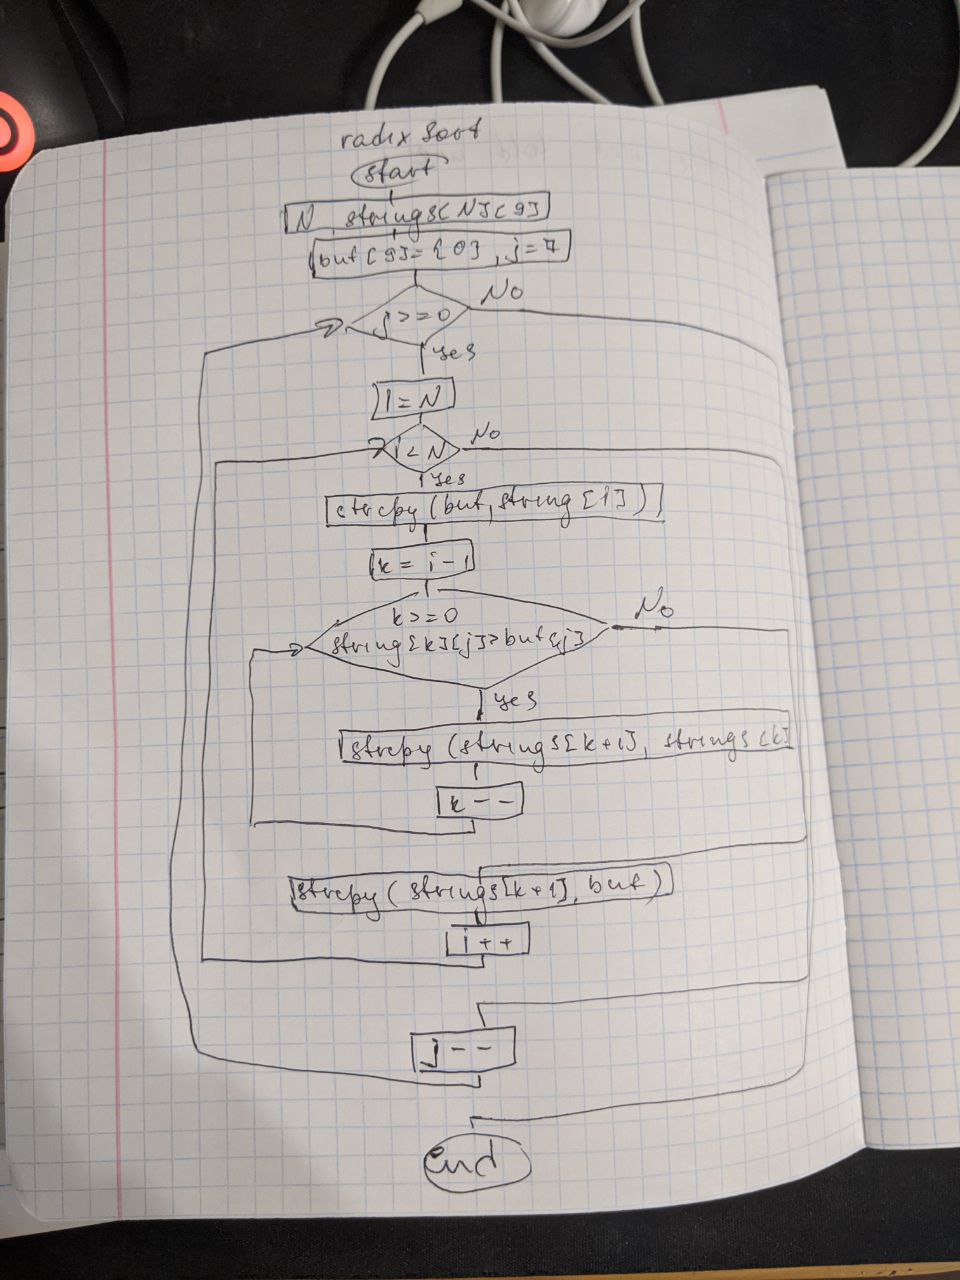 radix Sort
start
N, strings[N][9]
buf[9]={0}, j=7
j>=0
No
yes
i=N
i<N
No
yes
strcpy(buf, string[i])
k=i-1
k>=0
No
string[k][j]>buf[j]
yes
strcpy(strings[k+1], strings[k]
k--
strcpy(strings[k+1], buf)
i++
j--
end